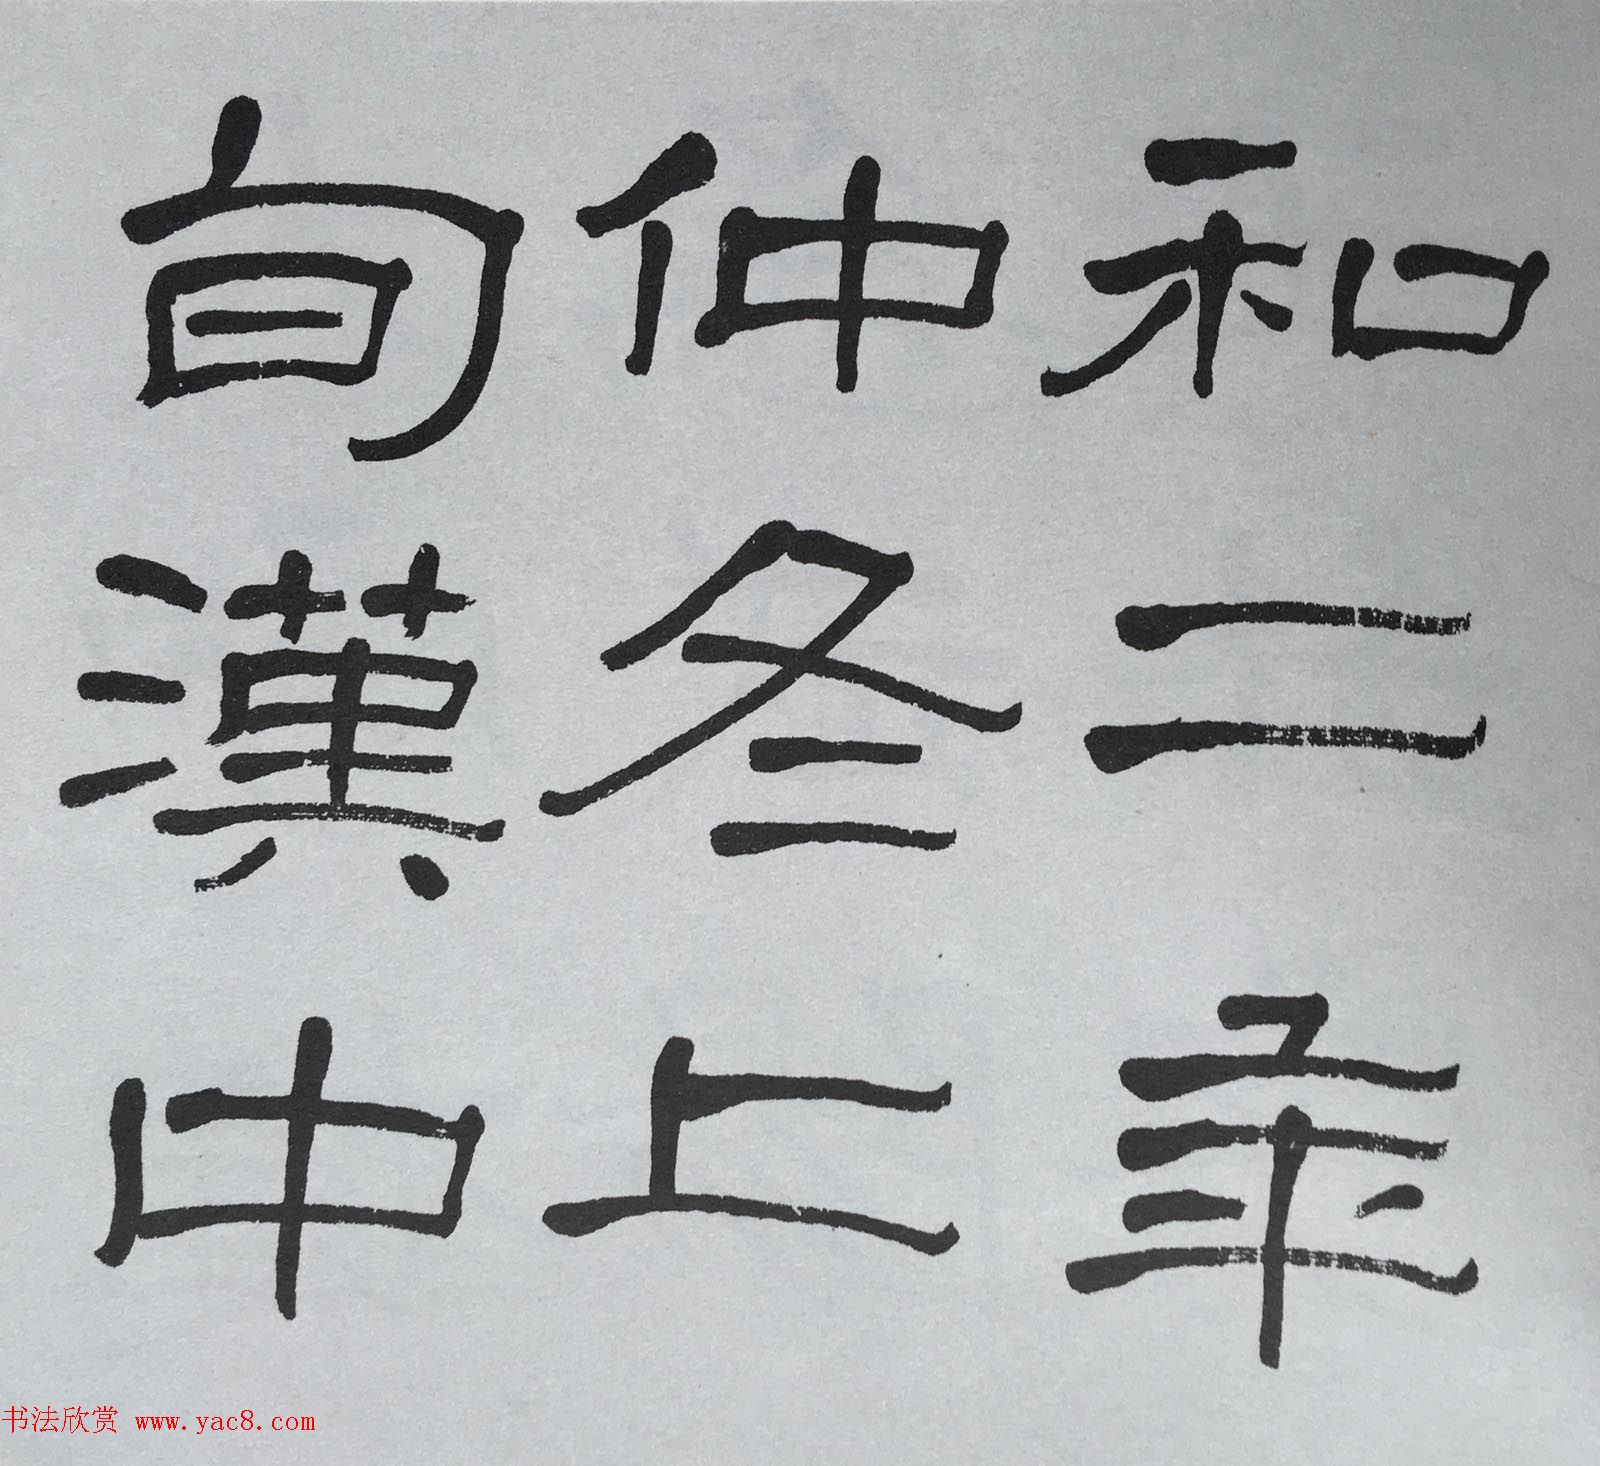 和二年
仲冬上
旬漢中
书法欣赏 www.yac8.com